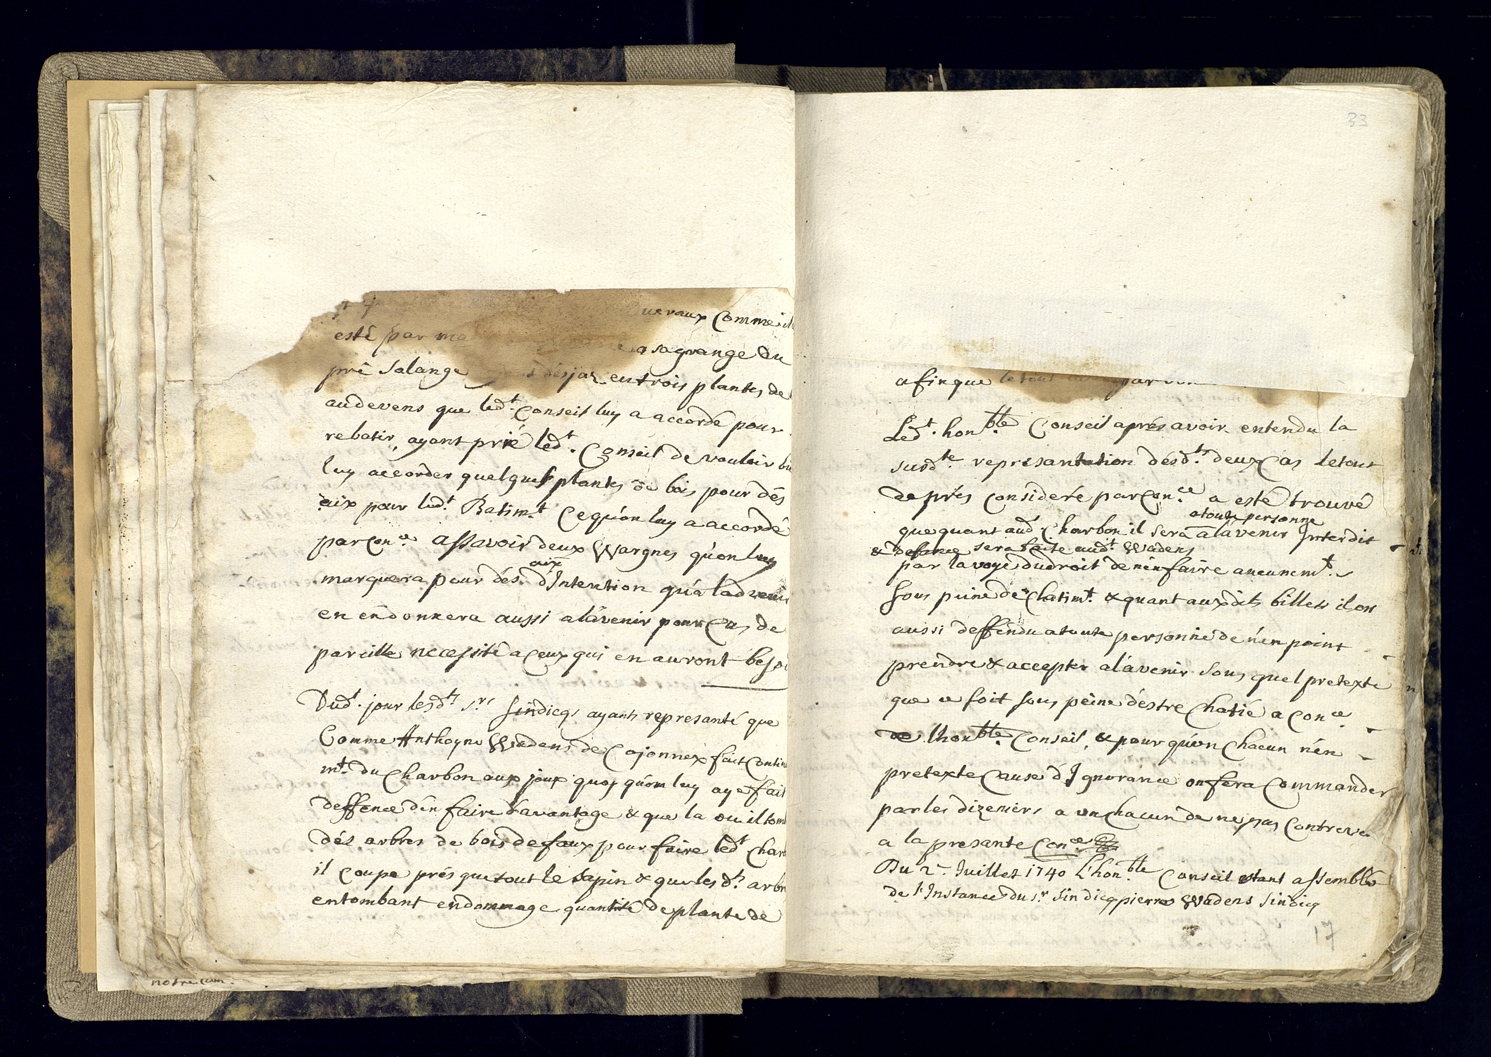 ueraux Comme il
esté par ma a sa grange du
pré Salange desja eu trois plantes de
audevens que led.t Conseil luy a accordé pour
rebatir, ayant prié led.t Conseil de vouloir bi
luy accorder quelques plantes de bois pour dés
aix pour led.t Batim.t ce qu'on luy a accordé
par con.ce assavoir deux Wargnes qu'on luy
marquera pour dés aix d'Intention qu'a ladvenir
en en donnera aussi a l'avenir pour Cas de
pareille necessité a ceux qui en auront besoi
Dud.t jour lesd.ts S.rs Sindicqs ayants represanté que
Comme Anthoyne Wadens de Cojonnex fait Contin
m.t du Charbon aux joux quoy qu'on luy aye fait
deffence d'en faire d'avantage & que la ou il tomb
dés arbres de bois de faux pour faire led.t Charb
il coupe prés que tout le sapin & que les d.ts arbr
en tombant endommage quantité de plante de
notre com.
33
afin que le tout
Led.t hon.ble Conseil aprés avoir entendu la
susd.te representation désd.ts deux Cas le tout
de prés consideré par con.ce a esté trouvé
a toute personne
que quant aud.t Charbon il sera a l'avenir Interdit
& deffence sera faite aud.t Wadens
par la voye du droit de n'en faire aucunem.t
sous peine de Chatim.t & quant aux dits billets il est
aussi deffendu a toute personne de n'en point
prendre & accepter a l'avenir sous quel pretexte
que ce soit sous peine d'éstre Chatié a con.ce
de l'hon.ble Conseil, & pour qu'on Chacun n'en
pretexte Cause d'Ignorance on fera Commander
par les dizeniers a un chacun de ne pas Contreve
a la presante Con.ce
Du 2.e Juillet 1740 L'hon.ble Conseil estant assemblé
de l'Instance du s.r Sindicq pierre Wadens Sindicq
17